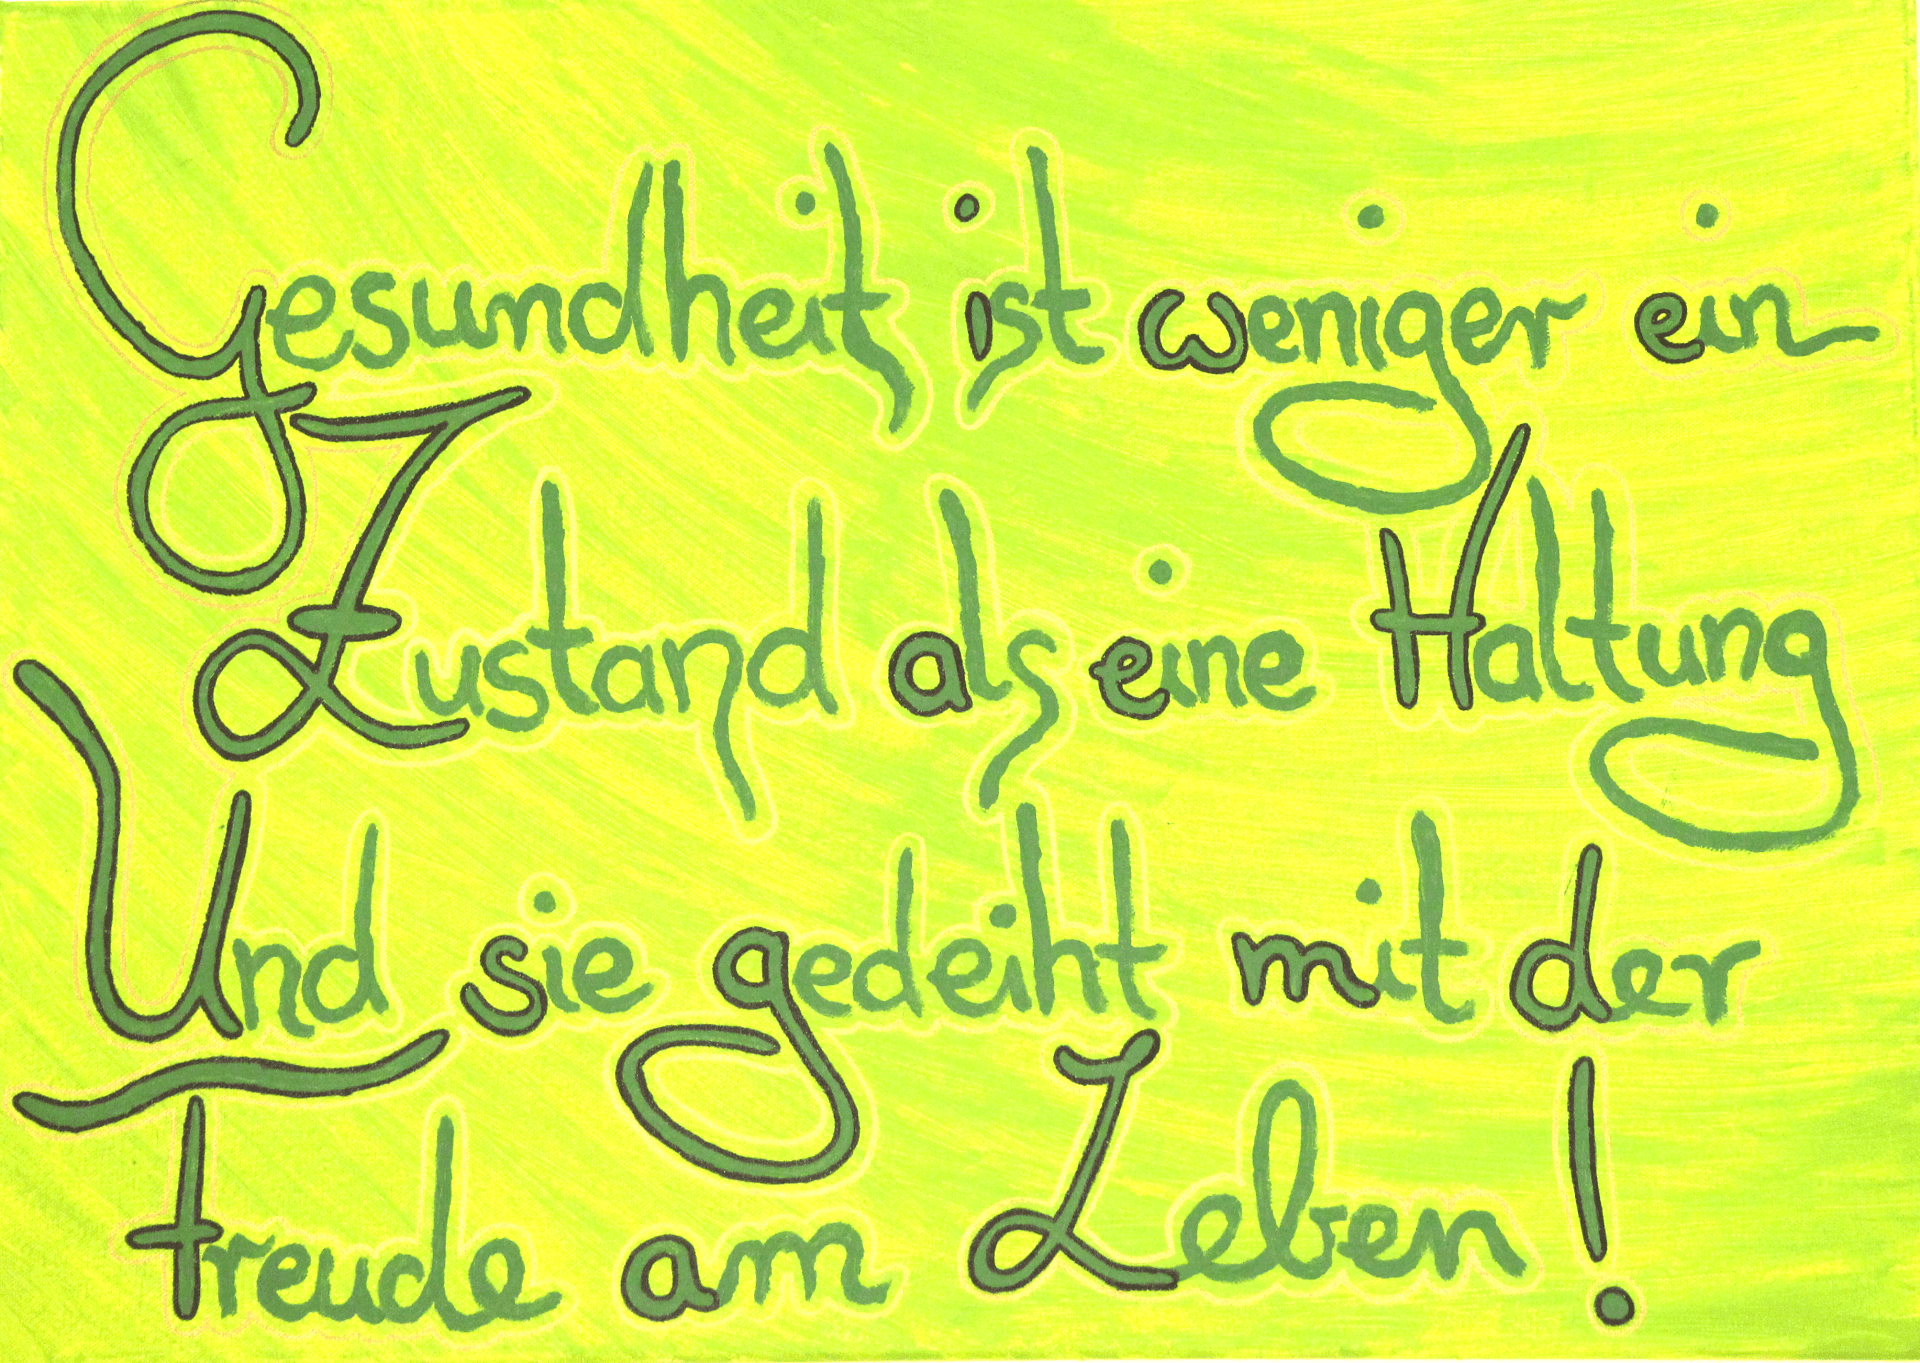 Gesundheit ist weniger ein
Zustand als eine Haltung
Und sie gedeiht mit der
Freude am Leben!